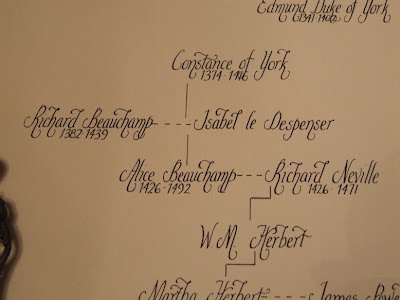 Edmund Duke of York
1341-1402
Constance of York
1374-1416
Richard Beauchamp --- Isabel le Despenser
1382-1439
Alice Beauchamp --- Richard Neville
1426-1492 1426-1471
WM Herbert
Martha Herbert ---- James